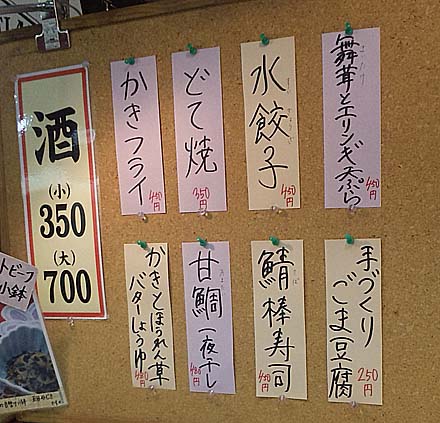 酒
(小)
350
(大)
700
かきフライ
450円
どて焼
350円
水餃子
450円
舞茸とエリンギ天ぷら
450円
かきとほうれん草
バターしょうゆ
480円
甘鯛一夜干し
480円
鯖棒寿司
450円
手づくり
ごま豆腐
250円
トビーフ
小鉢